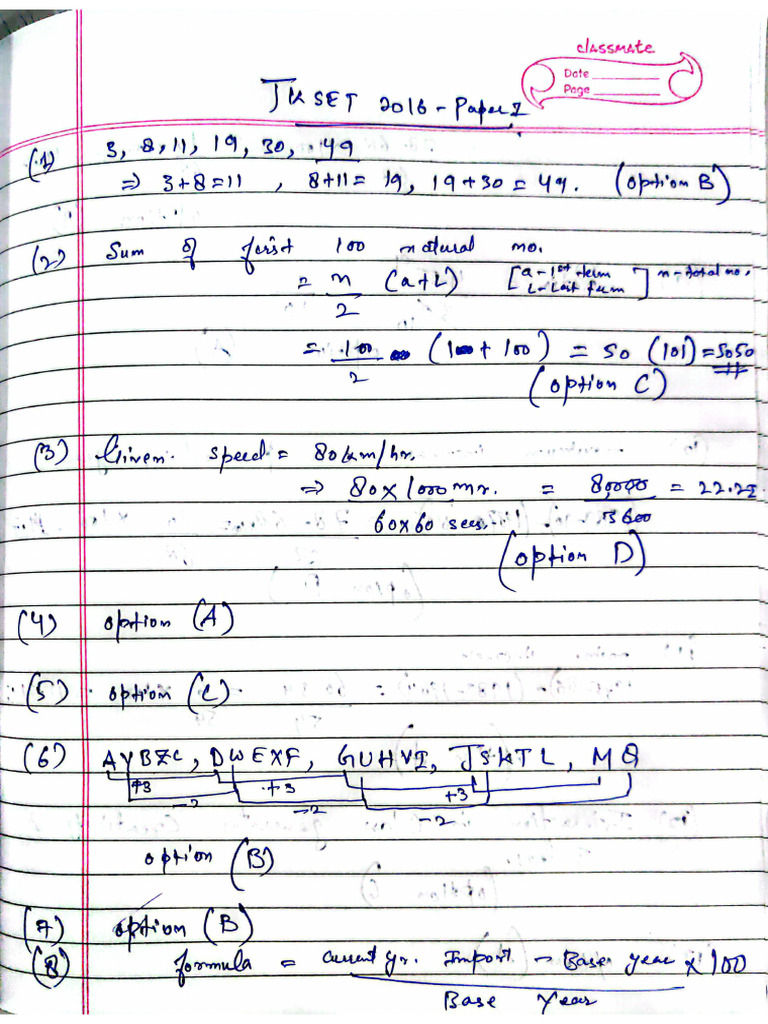 classmate
Date
Page
JKSET 2016 - Paper I
(1) 3, 8, 11, 19, 30, 49
⇒ 3+8=11 , 8+11= 19, 19+30=49. (option B)
(2) Sum of first 100 natural no.
= n/2 (a+L) [a-1st term L-Last term] n-total no.
= 100/2 (1+100) = 50 (101) = 5050
(option C)
(3) Given. speed = 80km/hr.
⇒ 80 x 1000 mr. / 60x60 secs. = 80,000 / 3600 = 22.22
(option D)
(4) option (A)
(5) option (C).
(6) AYBZC, DWEXF, GUHVI, JSKTL, MQ
+3 +3 +3
-2 -2 -2
option (B)
(7) option (B)
(8) formula = current yr. Import - Base year / Base Year x 100